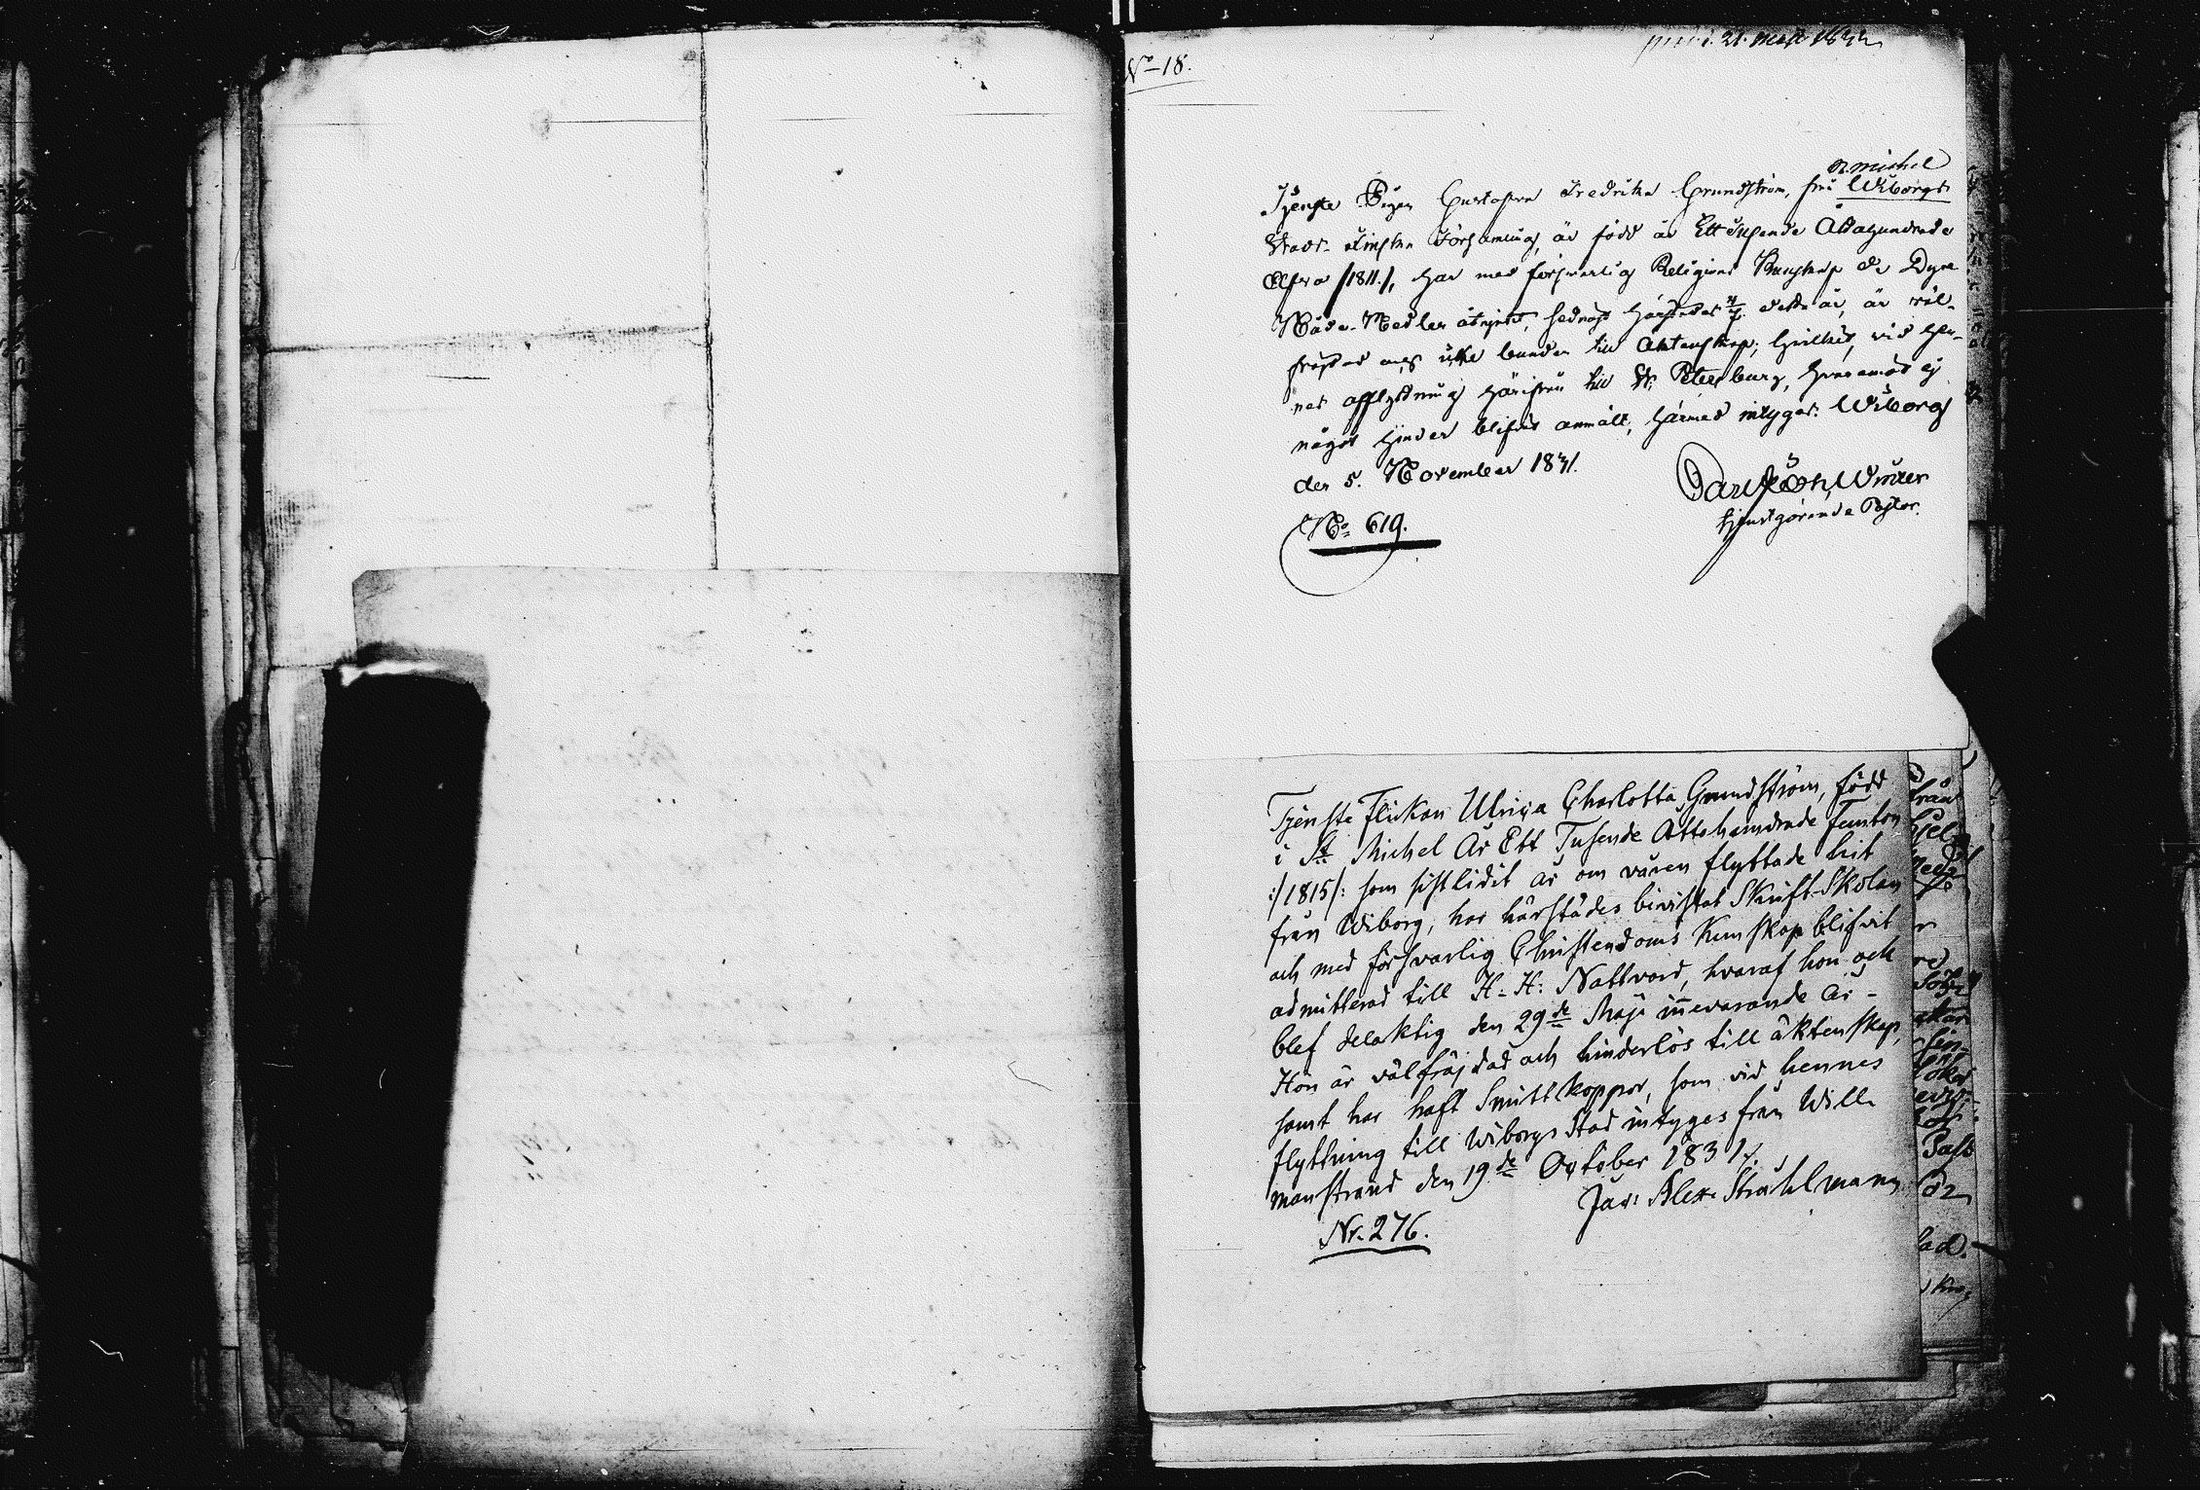 No 18.
prod. d. 21. Maji 1832
St Michel
Tjenste Pigan Gustafva Fredrika Grundström, från Wiborgs
Stads Finska Församling, är född år Ett tusende Åttahundrade
Elfva /1811./, har med försvarlig Religions Kunskap de Dyra
Nåde-Medlen åtnjutit, sednast härstädes detta år, är väl-
frejdad och icke bunden till Äktenskap; hvilket, vid hen-
nes afflyttning härifrån till St. Petersburg, hvaremot ej
något hinder blifvit anmält, härmed intygas: Wiborg
den 5. November 1831.
Carl Joh. Winter
tjenstgörande Pastor.
No 619.
Tjenste Flickan Ulrica Charlotta Grundström, född
i St Michel År Ett Tusende Åttahundrade Femton
:/1815/: som sistlidit år om våren flyttade hit
från Wiborg, har härstädes bevistat Skrift-Skolan
och med försvarlig Christendoms Kunskap blifvit
admitterad till H. H. Nattvard, hvaraf hon ock
blef delaktig den 29de Maji innevarande år -
Hon är välfräjdad och hinderlös till äktenskap,
samt har haft Smittkoppor, som vid hennes
flyttning till Wiborgs Stad intyges från Will-
manstrand den 19de October 1831.
Jac: Alex: Strahlmann
Nr. 276.